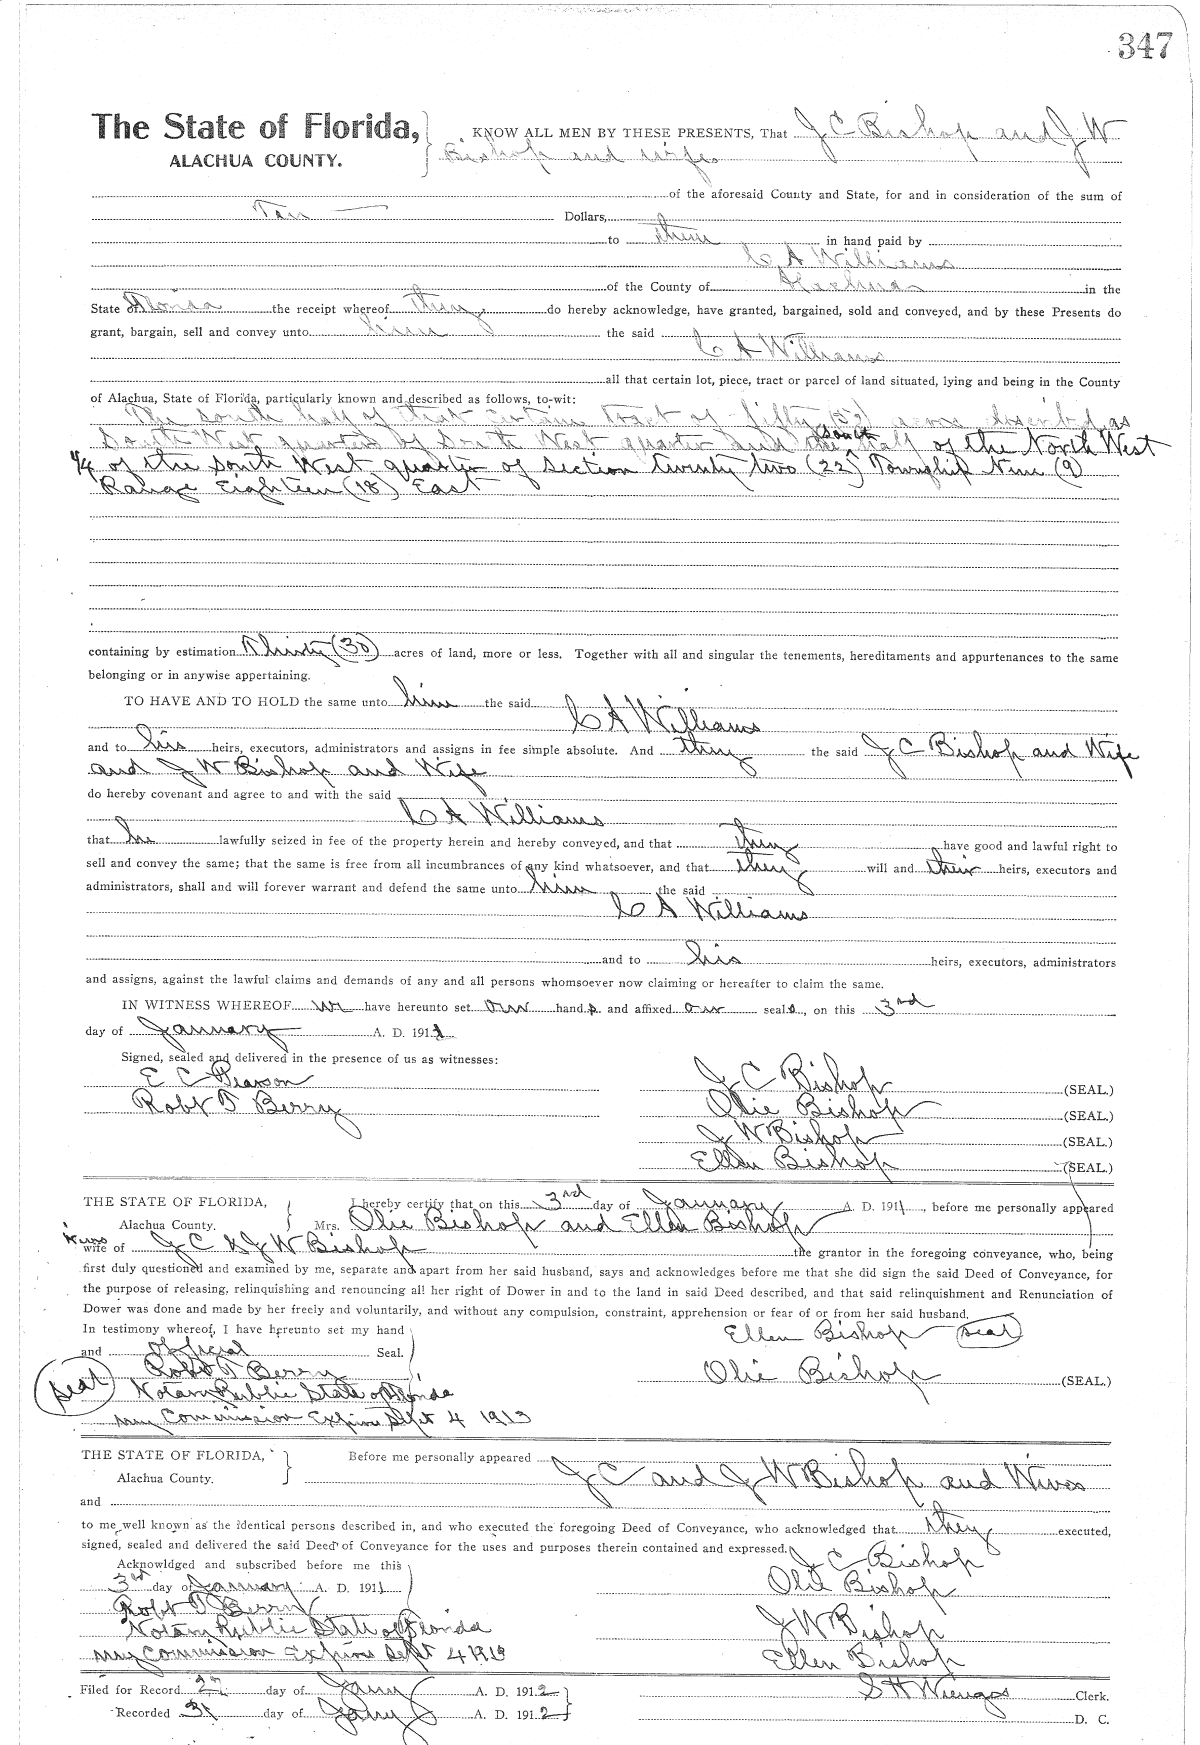 347
The State of Florida, KNOW ALL MEN BY THESE PRESENTS, That J C Bishop and J W
ALACHUA COUNTY. Bishop and wife
of the aforesaid County and State, for and in consideration of the sum of
Ten Dollars,
to them in hand paid by
C A Williams
of the County of Alachua in the
State of Florida the receipt whereof they do hereby acknowledge, have granted, bargained, sold and conveyed, and by these Presents do
grant, bargain, sell and convey unto him the said
C A Williams
all that certain lot, piece, tract or parcel of land situated, lying and being in the County
of Alachua, State of Florida, particularly known and described as follows, to-wit:
The south half of that certain tract of fifty acres described as
South West quarter of South West quarter and the south half of the North West
1/4 of the South West quarter of Section twenty two (22) Township Nine (9)
Range Eighteen (18) East
containing by estimation Thirty (30) acres of land, more or less. Together with all and singular the tenements, hereditaments and appurtenances to the same
belonging or in anywise appertaining.
TO HAVE AND TO HOLD the same unto him the said
C A Williams
and to his heirs, executors, administrators and assigns in fee simple absolute. And they the said J C Bishop and Wife
and J W Bishop and Wife
do hereby covenant and agree to and with the said
C A Williams
that he lawfully seized in fee of the property herein and hereby conveyed, and that they have good and lawful right to
sell and convey the same; that the same is free from all incumbrances of any kind whatsoever, and that they will and their heirs, executors and
administrators, shall and will forever warrant and defend the same unto him the said
C A Williams
and to his heirs, executors, administrators
and assigns, against the lawful claims and demands of any and all persons whomsoever now claiming or hereafter to claim the same.
IN WITNESS WHEREOF we have hereunto set our hands and affixed our seals, on this 3rd
day of January A. D. 1911
Signed, sealed and delivered in the presence of us as witnesses:
E C Pearson J C Bishop (SEAL.)
Robt T Berry Olie Bishop (SEAL.)
J W Bishop (SEAL.)
Ellen Bishop (SEAL.)
THE STATE OF FLORIDA, I hereby certify that on this 3rd day of January A. D. 1911, before me personally appeared
Alachua County. Mrs. Olie Bishop and Ellen Bishop
wife of J C & J W Bishop the grantor in the foregoing conveyance, who, being
first duly questioned and examined by me, separate and apart from her said husband, says and acknowledges before me that she did sign the said Deed of Conveyance, for
the purpose of releasing, relinquishing and renouncing all her right of Dower in and to the land in said Deed described, and that said relinquishment and Renunciation of
Dower was done and made by her freely and voluntarily, and without any compulsion, constraint, apprehension or fear of or from her said husband.
In testimony whereof, I have hereunto set my hand Ellen Bishop Seal
and official Seal.
Seal Robt T Berry Olie Bishop (SEAL.)
Notary Public State of Florida
my Commission Expires Sept 4 1913
THE STATE OF FLORIDA, Before me personally appeared
Alachua County. J C and J W Bishop and Wives
and
to me well known as the identical persons described in, and who executed the foregoing Deed of Conveyance, who acknowledged that they executed,
signed, sealed and delivered the said Deed of Conveyance for the uses and purposes therein contained and expressed.
Acknowldged and subscribed before me this J C Bishop
3rd day of January A. D. 1911 Olie Bishop
Robt T Berry
Notary Public State of Florida J W Bishop
my Commission Expires Sept 4 1913 Ellen Bishop
Filed for Record 27 day of Jany A. D. 1912 S H Wienges Clerk.
Recorded 31 day of Jany A. D. 1912 D. C.